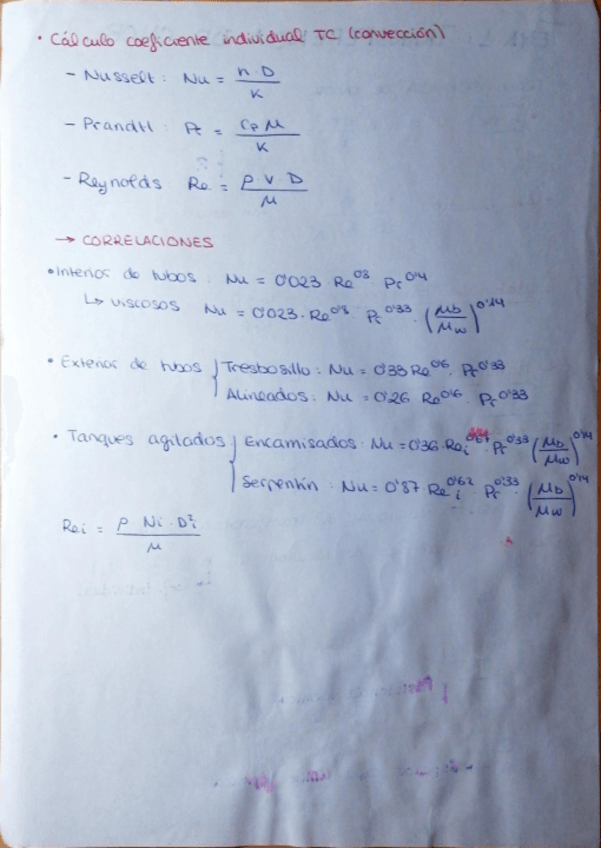 • Cálculo coeficiente individual TC (convección)
- Nusselt: Nu = h·D / K
- Prandtl: Pr = Cp μ / K
- Reynolds Re = ρ·V·D / μ
→ CORRELACIONES
• Interior de tubos: Nu = 0'023 · Re^0'8 · Pr^0'4
↳ viscosos Nu = 0'023 · Re^0'8 · Pr^0'33 · (μb/μw)^0'14
• Exterior de tubos { Tresbosillo: Nu = 0'33 Re^0'6 · Pr^0'33
Alineados: Nu = 0'26 Re^0'6 · Pr^0'33
• Tanques agitados { Encamisados: Nu = 0'36 · Rei^0'67 · Pr^0'33 (μb/μw)^0'14
Serpentín: Nu = 0'87 Rei^0'62 · Pr^0'33 · (μb/μw)^0'14
Rei = ρ · Ni · Di² / μ